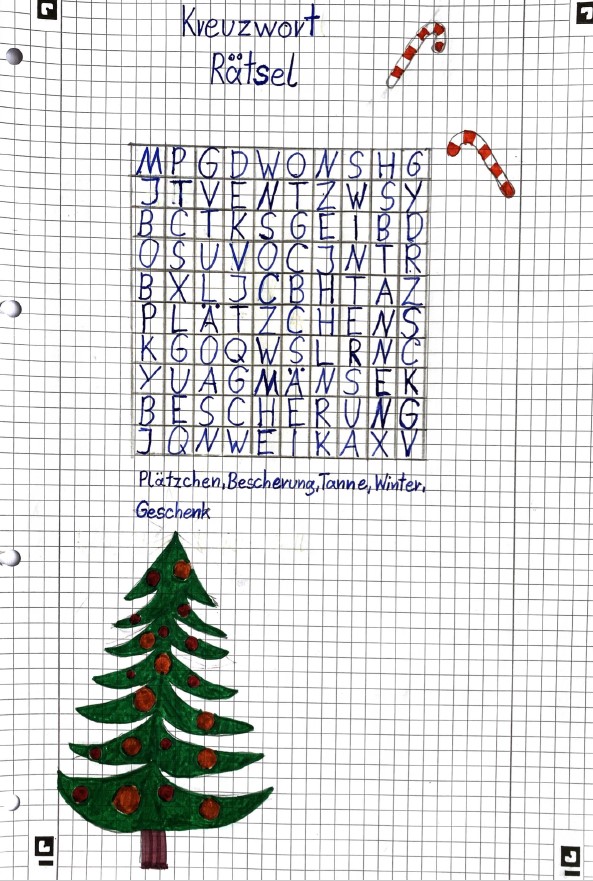 Kreuzwort
Rätsel
M P G D W O N S H G
J T V E N T Z W S Y
B C T K S G E I B D
O S U V O C J N T R
B X L J C B H T A Z
P L Ä T Z C H E N S
K G O Q W S L R N C
Y U A G M Ä N S E K
B E S C H E R U N G
J Q N W E I K A X V
Plätzchen, Bescherung, Tanne, Winter,
Geschenk